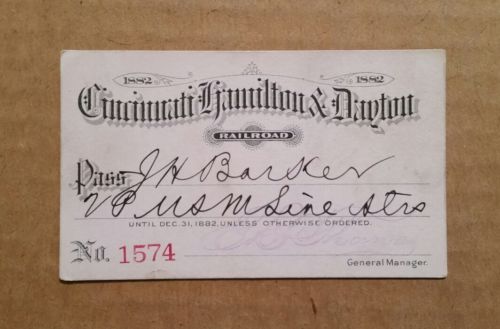 1882 1882
Cincinnati Hamilton & Dayton
RAILROAD
Pass J H Barker
VP U S M Line Strs
UNTIL DEC. 31, 1882, UNLESS OTHERWISE ORDERED.
No. 1574
General Manager.